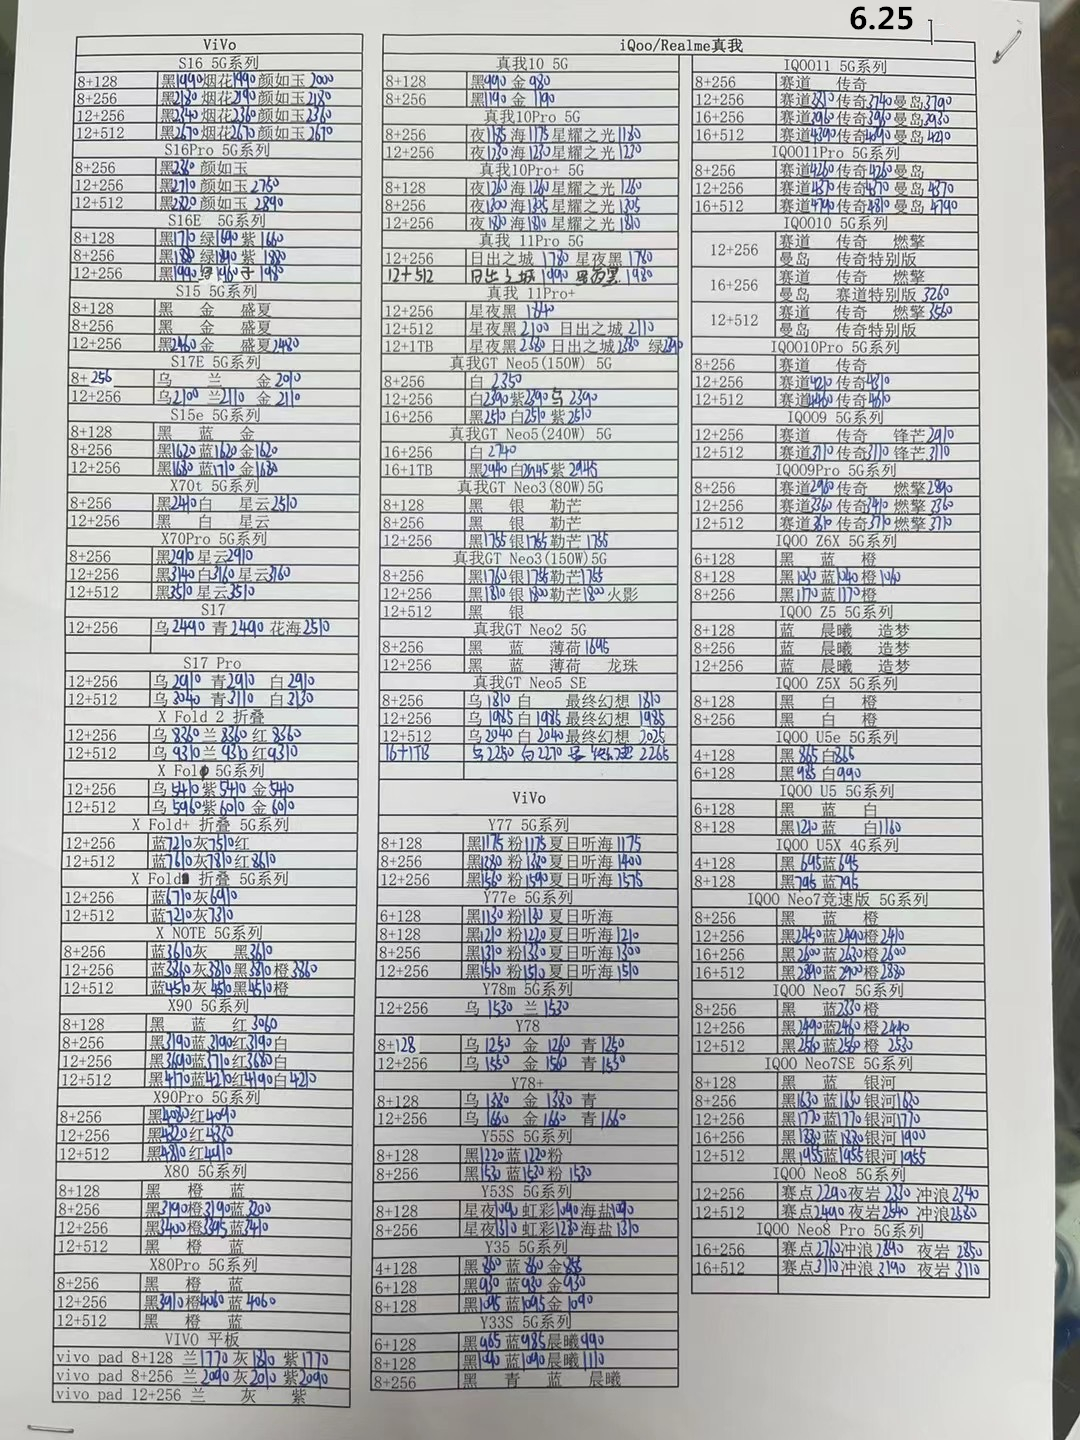 6.25
ViVo
S16 5G系列
8+128 黑1990 烟花1990 颜如玉 2000
8+256 黑2180 烟花2190 颜如玉 2180
12+256 黑2340 烟花2360 颜如玉 2360
12+512 黑2670 烟花2670 颜如玉 2670
S16Pro 5G系列
8+256 黑2360 颜如玉
12+256 黑2710 颜如玉 2750
12+512 黑2820 颜如玉 2890
S16E 5G系列
8+128 黑1710 绿1690 紫1660
8+256 黑1880 绿1890 紫 1880
12+256 黑1990 1960 1980
S15 5G系列
8+128 黑 金 盛夏
8+256 黑 金 盛夏
12+256 黑2460 金 盛夏2480
S17E 5G系列
8+256 乌 兰 金 2010
12+256 乌2100 兰2110 金 2110
S15e 5G系列
8+128 黑 蓝 金
8+256 黑1620 蓝1620 金1620
12+256 黑1680 蓝1710 金1680
X70t 5G系列
8+256 黑2410 白 星云2510
12+256 黑 白 星云
X70Pro 5G系列
8+256 黑2910 星云2910
12+256 黑3140 白3160 星云3160
12+512 黑3510 星云3510
S17
12+256 乌 2490 青 2490 花海 2510
S17 Pro
12+256 乌 2910 青 2910 白 2910
12+512 乌 3040 青 3110 白 3130
X Fold 2 折叠
12+256 乌 8360 兰 8360 红 8360
12+512 乌 9310 兰 9310 红9310
X Fol 5G系列
12+256 乌 5410 紫 5410 金 5440
12+512 乌 5960 紫 6010 金 6010
X Fold+ 折叠 5G系列
12+256 蓝7210 灰7510 红
12+512 蓝7610 灰7810 红 8610
X Fold 折叠 5G系列
12+256 蓝6710 灰6910
12+512 蓝7210 灰7310
X NOTE 5G系列
8+256 蓝3610 灰 黑3610
12+256 蓝3860 灰3810 黑3810 橙 3860
12+512 蓝4510 灰 4510 黑4510 橙
X90 5G系列
8+128 黑 蓝 红 3060
8+256 黑3190 蓝3190 红3190 白
12+256 黑3690 蓝3710 红3680 白
12+512 黑4170 蓝4210 红4190 白4210
X90Pro 5G系列
8+256 黑4080 红4090
12+256 黑4320 红4330
12+512 黑4810 红4910
X80 5G系列
8+128 黑 橙 蓝
8+256 黑3190 橙3190 蓝3200
12+256 黑3400 橙3395 蓝3410
12+512 黑 橙 蓝
X80Pro 5G系列
8+256 黑 橙 蓝
12+256 黑3910 橙4060 蓝 4060
12+512 黑 橙 蓝
VIVO 平板
vivo pad 8+128 兰 1770 灰 1810 紫 1770
vivo pad 8+256 兰 2090 灰 2010 紫2090
vivo pad 12+256 兰 灰 紫
iQoo/Realme真我
真我10 5G
8+128 黑990 金 980
8+256 黑1190 金 1190
真我10Pro 5G
8+256 夜1185 海 1175 星耀之光 1180
12+256 夜1230 海 1230 星耀之光 1230
真我10Pro+ 5G
8+128 夜1260 海 1260 星耀之光 1260
8+256 夜1300 海 1305 星耀之光 1305
12+256 夜1810 海 1810 星耀之光 1810
真我 11Pro 5G
12+256 日出之城 1780 星夜黑 1780
12+512 日出之城 1990 星夜黑 1980
真我 11Pro+
12+256 星夜黑 1840
12+512 星夜黑 2100 日出之城 2110
12+1TB 星夜黑 2380 日出之城 2380 绿2390
真我GT Neo5(150W) 5G
8+256 白 2350
12+256 白2390 紫2390 乌 2390
16+256 黑2510 白2510 紫2510
真我GT Neo5(240W) 5G
16+256 白 2740
16+1TB 黑2940 白2945 紫 2945
真我GT Neo3(80W)5G
8+128 黑 银 勒芒
8+256 黑 银 勒芒
12+256 黑1755 银1755 勒芒 1755
真我GT Neo3(150W)5G
8+256 黑1760 银1755 勒芒1755
12+256 黑1810 银1800 勒芒1800 火影
12+512 黑 银
真我GT Neo2 5G
8+256 黑 蓝 薄荷1695
12+256 黑 蓝 薄荷 龙珠
真我GT Neo5 SE
8+256 乌 1810 白 最终幻想 1810
12+256 乌 1985 白 1985 最终幻想 1985
12+512 乌 2040 白 2040 最终幻想 2025
16+1TB 乌 2250 白 2270 2265
ViVo
Y77 5G系列
8+128 黑1175 粉 1175 夏日听海 1175
8+256 黑1380 粉 1380 夏日听海 1400
12+256 黑1560 粉 1590 夏日听海 1575
Y77e 5G系列
6+128 黑1130 粉1130 夏日听海
8+128 黑1210 粉1220 夏日听海 1210
8+256 黑1310 粉1330 夏日听海 1300
12+256 黑1510 粉1510 夏日听海 1510
Y78m 5G系列
12+256 乌 1530 兰 1530
Y78
8+128 乌 1250 金 1260 青 1250
12+256 乌 1550 金 1560 青 1550
Y78+
8+128 乌 1380 金 1380 青
12+256 乌 1660 金 1660 青 1660
Y55S 5G系列
8+128 黑1220 蓝1220 粉
8+256 黑1530 蓝1530 粉 1530
Y53S 5G系列
8+128 星夜1090 虹彩 1090 海盐1090
8+256 星夜1310 虹彩 1280 海盐 1310
Y35 5G系列
4+128 黑860 蓝 860 金855
6+128 黑930 蓝 930 金 930
8+128 黑1095 蓝1095 金 1090
Y33S 5G系列
6+128 黑965 蓝985 晨曦 990
8+128 黑1090 蓝1090 晨曦 1110
8+256 黑 青 蓝 晨曦
IQOO11 5G系列
8+256 赛道 传奇
12+256 赛道3810 传奇3740 曼岛3790
16+256 赛道3960 传奇3960 曼岛3930
16+512 赛道4390 传奇4090 曼岛 4210
IQOO11Pro 5G系列
8+256 赛道4260 传奇4260 曼岛
12+256 赛道4370 传奇4370 曼岛 4370
16+512 赛道4790 传奇4810 曼岛 4790
IQOO10 5G系列
12+256 赛道 传奇 燃擎
曼岛 传奇特别版
16+256 赛道 传奇 燃擎
曼岛 赛道特别版 3260
12+512 赛道 传奇 燃擎 3560
曼岛 传奇特别版
IQOO10Pro 5G系列
8+256 赛道 传奇
12+256 赛道4210 传奇4310
12+512 赛道4460 传奇4610
IQOO9 5G系列
12+256 赛道 传奇 锋芒 2910
12+512 赛道3110 传奇3110 锋芒 3110
IQOO9Pro 5G系列
8+256 赛道2960 传奇 燃擎 2890
12+256 赛道3360 传奇3410 燃擎 3360
12+512 赛道3610 传奇3710 燃擎 3710
IQOO Z6X 5G系列
6+128 黑 蓝 橙
8+128 黑1030 蓝1040 橙1060
8+256 黑1170 蓝1170 橙
IQOO Z5 5G系列
8+128 蓝 晨曦 造梦
8+256 蓝 晨曦 造梦
12+256 蓝 晨曦 造梦
IQOO Z5X 5G系列
8+128 黑 白 橙
8+256 黑 白 橙
IQOO U5e 5G系列
4+128 黑 865 白865
6+128 黑 985 白990
IQOO U5 5G系列
6+128 黑 蓝 白
8+128 黑1210 蓝 白1160
IQOO U5X 4G系列
4+128 黑 695 蓝695
8+128 黑795 蓝795
IQOO Neo7竞速版 5G系列
8+256 黑 蓝 橙
12+256 黑2450 蓝2490 橙2410
16+256 黑2600 蓝2630 橙2600
16+512 黑2890 蓝2900 橙2880
IQOO Neo7 5G系列
8+256 黑 蓝2330 橙
12+256 黑2490 蓝2460 橙 2440
12+512 黑2560 蓝2560 橙 2530
IQOO Neo7SE 5G系列
8+128 黑 蓝 银河
8+256 黑1630 蓝1630 银河1630
12+256 黑1770 蓝1770 银河1770
16+256 黑1880 蓝1880 银河1900
12+512 黑1955 蓝1955 银河1955
IQOO Neo8 5G系列
12+256 赛点 2290 夜岩 2330 冲浪 2340
12+512 赛点 2490 夜岩 2540 冲浪 2580
IQOO Neo8 Pro 5G系列
16+256 赛点 2760 冲浪 2890 夜岩 2850
16+512 赛点 3110 冲浪 3190 夜岩 3110